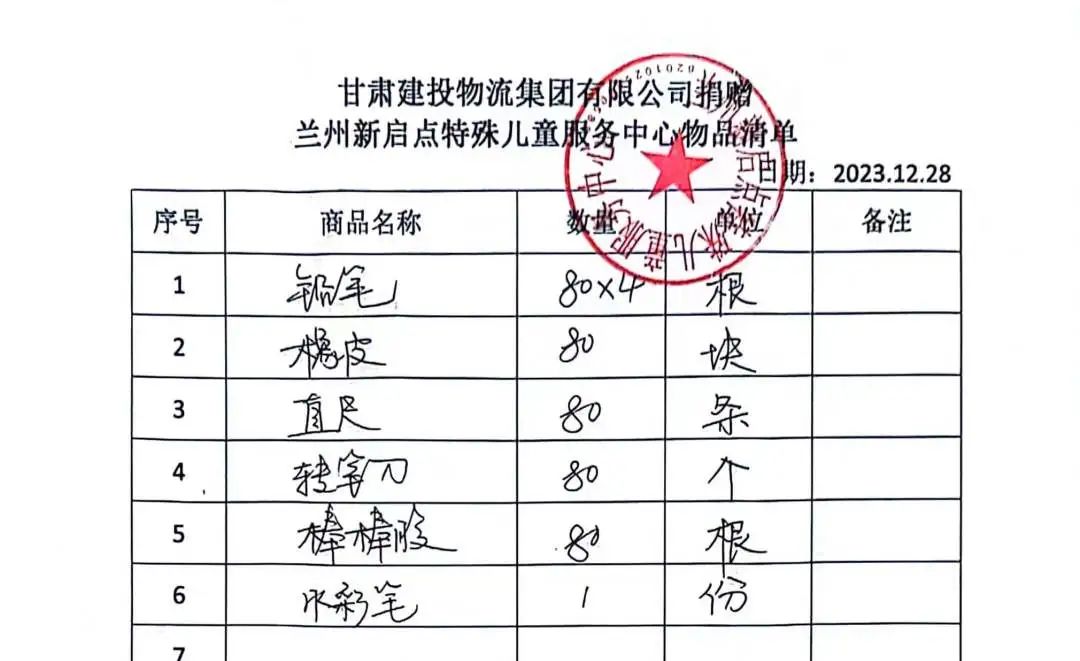 甘肃建投物流集团有限公司捐赠
兰州新启点特殊儿童服务中心物品清单
日期：2023.12.28
序号 商品名称 数量 单位 备注
1 铅笔 80×4 根
2 橡皮 80 块
3 直尺 80 条
4 转笔刀 80 个
5 棒棒胶 80 根
6 水彩笔 1 份
7